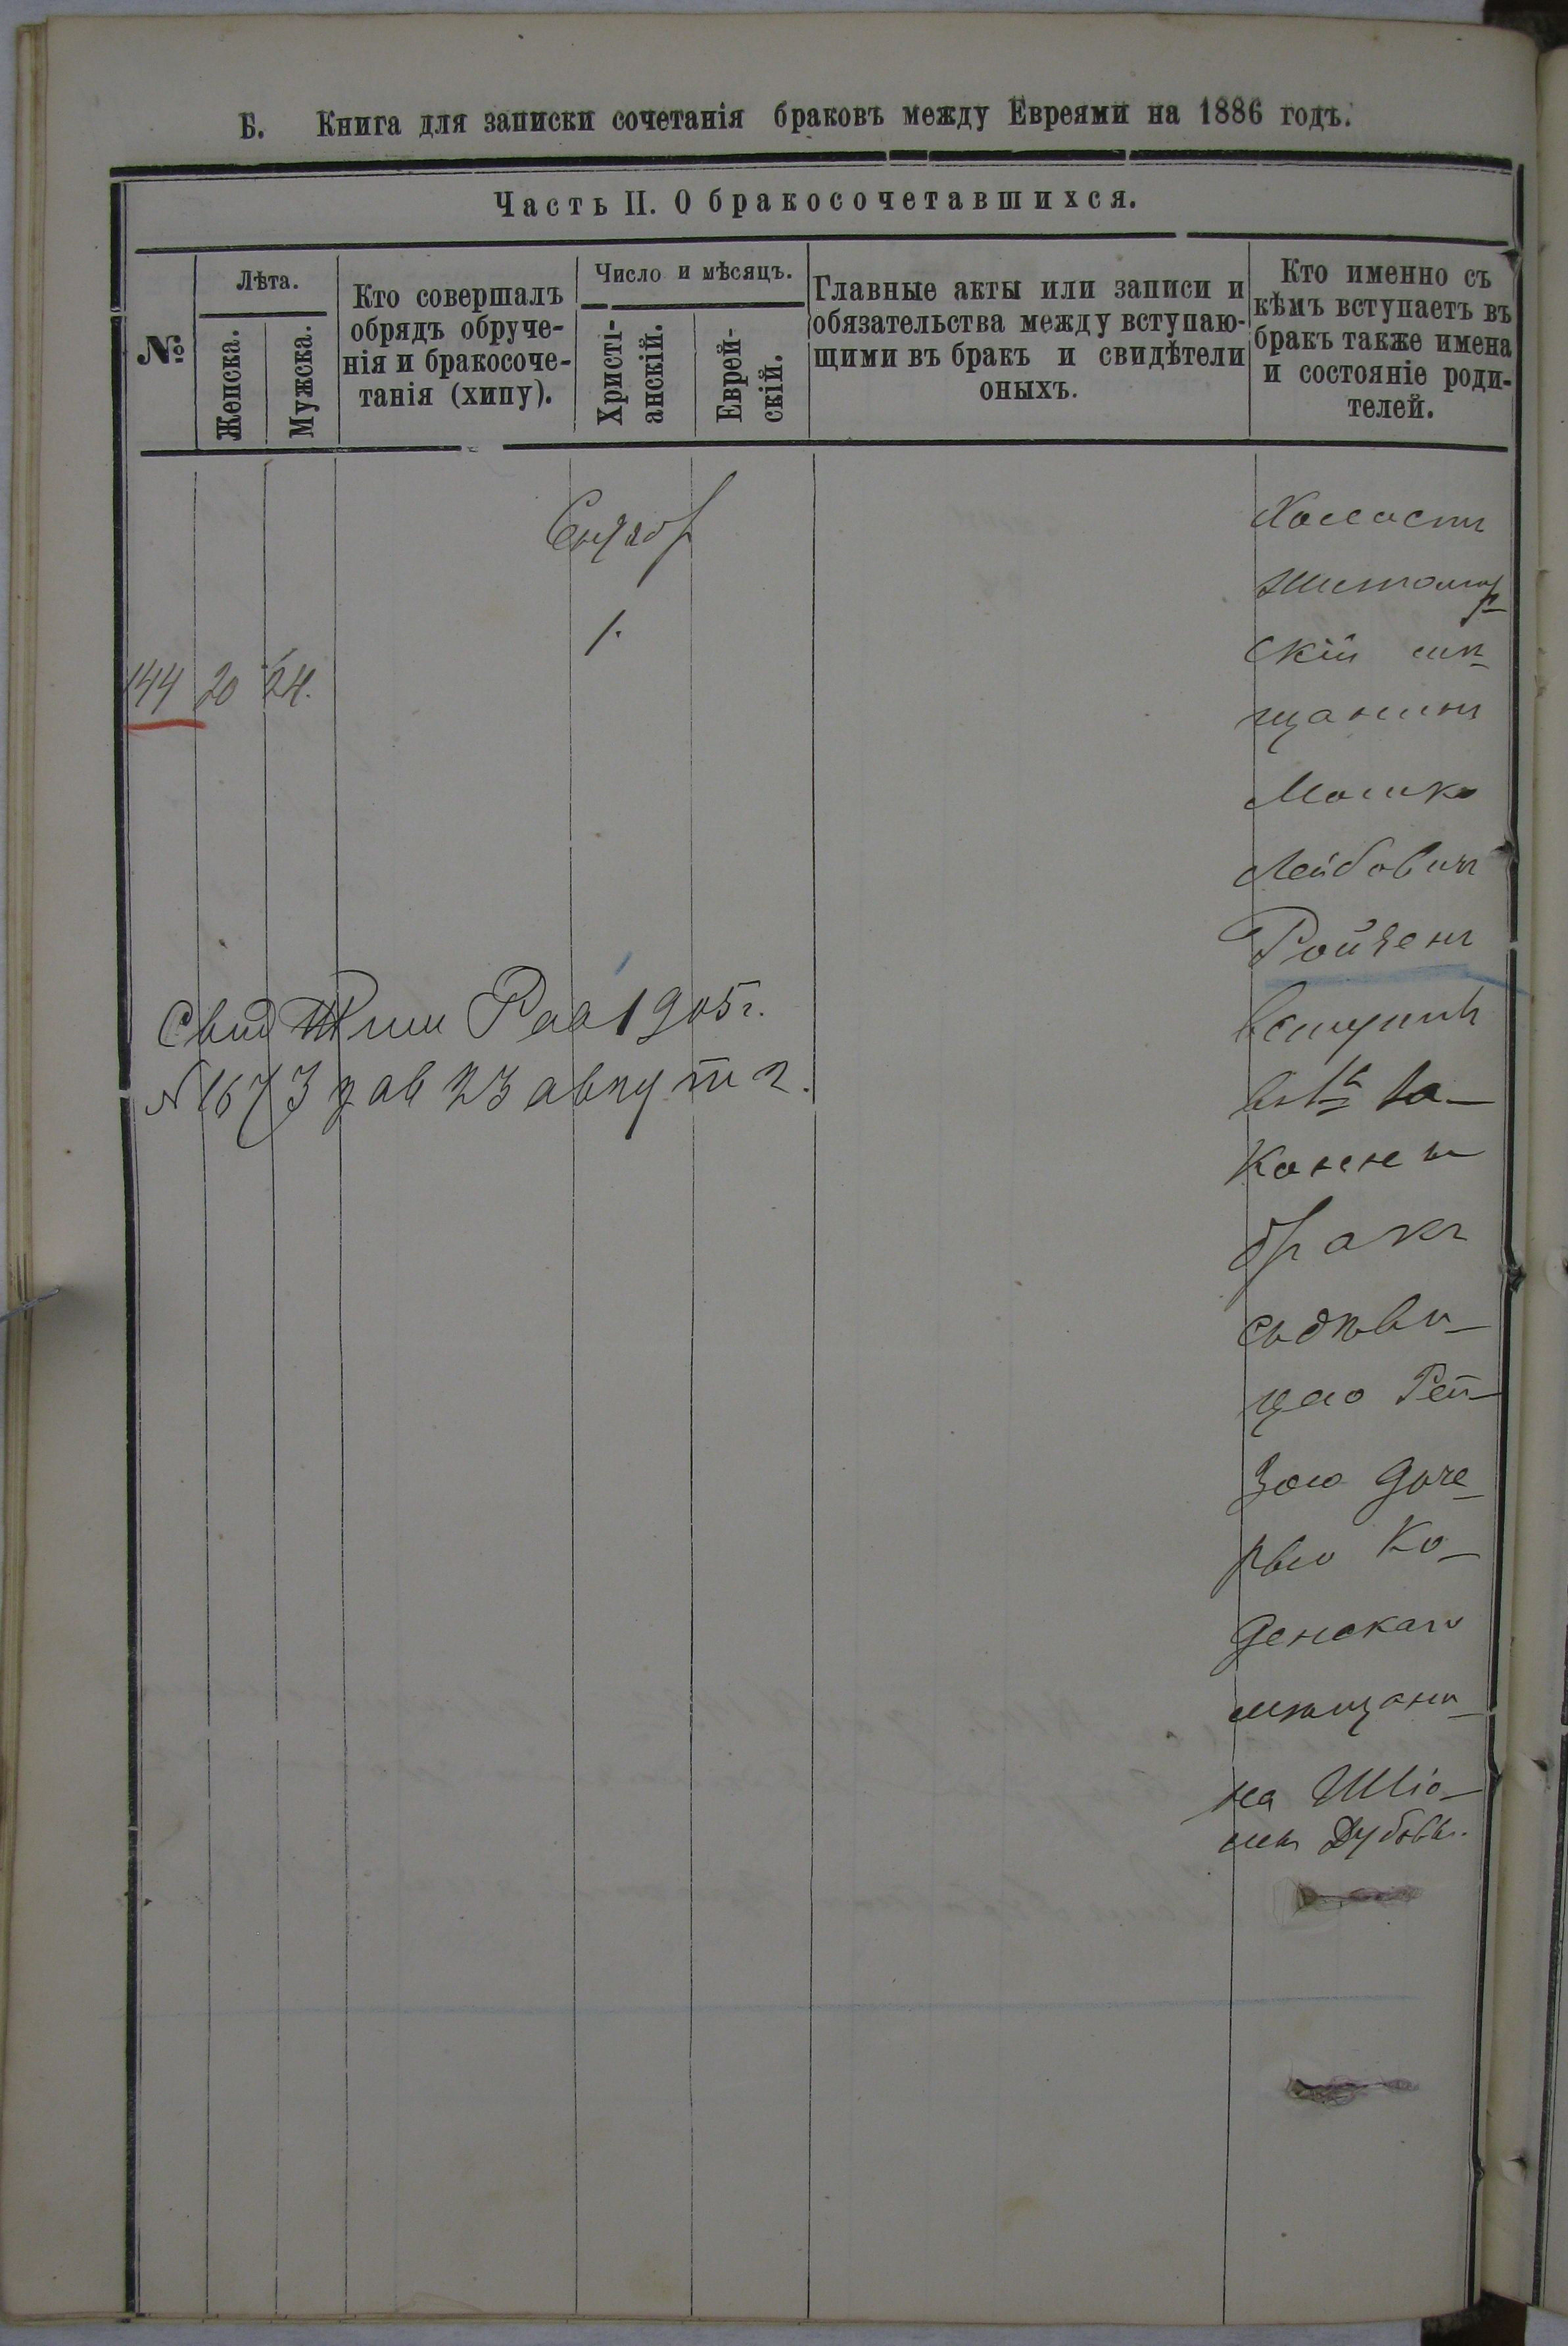 Б. Книга для записки сочетанія браковъ между Евреями на 1886 годъ.
Часть II. О бракосочетавшихся.
№
Лѣта.
Женска.
Мужска.
Кто совершалъ
обрядъ обруче-
нія и бракосоче-
танія (хипу).
Число и мѣсяцъ.
Христі-
анскій.
Еврей-
скій.
Главные акты или записи и
обязательства между вступаю-
щими въ бракъ и свидѣтели
оныхъ.
Кто именно съ
кѣмъ вступаетъ въ
бракъ также имена
и состояніе роди-
телей.
144 20 24.
1.
Холост
Житомир-
скій мѣ-
щанинъ
Мошко
Лейбовичъ
Ройзенъ
вступилъ
въ 1й за-
конны
бракъ
съ дѣви-
цею Рей-
зою доче-
рью Ко-
денскаго
мѣщани-
на Шліо-
мы Дубовы.
Свид 1905 г.
№ 1673 23 авгус т г.